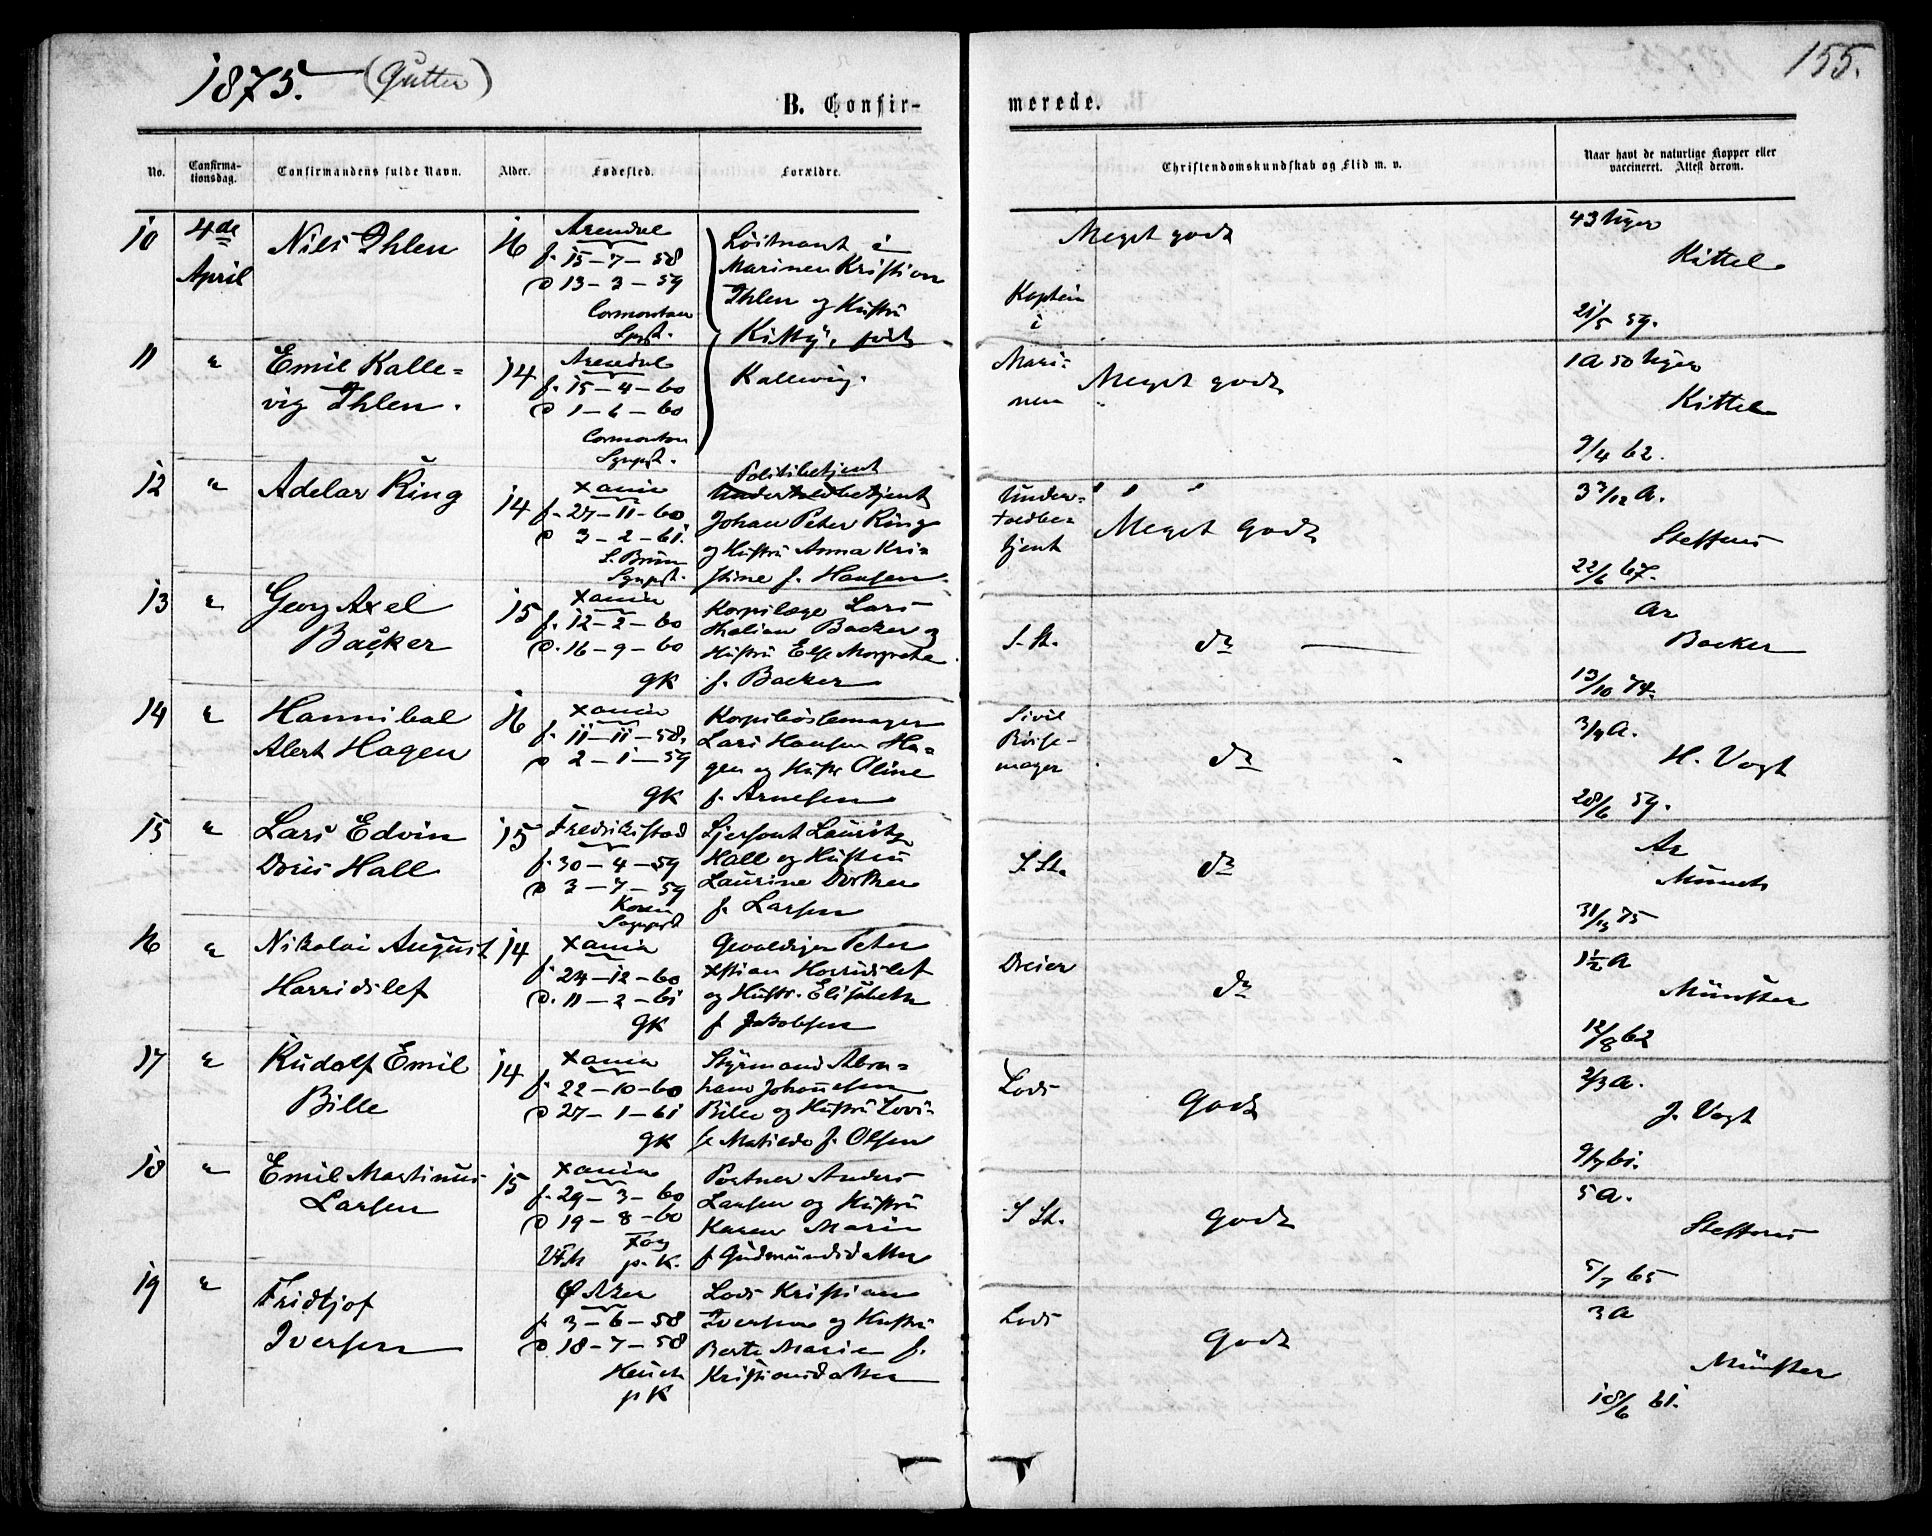 1875. (Gutter)
155.
B. Confir-
merede.
No.
Confirma-
tionsdag.
Confirmandens fulde Navn.
Alder.
Fødested.
Forældre.
Christendomskundskab og Flid m. v.
Naar havt de naturlige Kopper eller
vaccineret. Attest derom.
10
4de
April
Nils Ihlen
16
Arendal
f. 15-7-58
D 13-3-59
Løitnant i
Marinen Kristian
Ihlen og Hustru
Kitty, født
Kallevig.
Kaptein
i
Mari-
nen
Meget godt
43 Uger
Kittel
21/5 59.
11
"
Emil Kalle-
vig Ihlen.
14
Arendal
f. 15-4-60
D 1-6-60
Meget godt
1 A 50 Uger
Kittel
9/4 62.
12
"
Adelar Ring
14
Xania
f. 27-11-60
D 3-2-61.
S. Bruun
Politibetjent
Undertoldbetjent
Johan Peter Ring
og Hustru Anna Kri-
stine f. Hansen
Under-
toldbe-
tjent
" " "
Meget Godt
3 3/12 A.
Steffens
22/6 67.
13
"
Georg Axel
Backer
15
Xania
f. 12-2-60
D. 16-9-60
GK
Korpslæge Lars
Thalian Backer og
Hustru Else Margrete
f. Backer
S. St.
do
Ar
Backer
13/10 74.
14
"
Hannibal
Alert Hagen
16
Xania
f. 11-11-58.
D 2-1-59
GK
Korpsbøssemager
Lars Hansen Ha-
gen og Hustr Oline
f. Arnesen
Sivil
Bøsse-
mager
do
3/4 A.
H. Vogt
28/6 59.
15
"
Lars Edvin
Dries Hall
15
Fredrikstad
f. 30-4-59
D 3-7-59
Koren
Sersjant Lauritz
Hall og Hustru
Laurine Dorthea
f. Larsen
S St.
do
Ar
Münch
75
16
"
Nikolai August
Harridslef
14
Xania
f. 24-12-60
D. 11-2-61
GK
Gevaldiger Peter
Xstian Harridslef
og Hustr. Elisabeth
f Jakobsen
Dreier
do
1 1/2 A
Münster
12/8 62
17
"
Rudolf Emil
Bille
14
Xania
f. 22-10-60
D 27-1-61
GK
Styrmand Abra-
ham Johannesen
Bille og Hustru Lovi-
se Matilde f. Olsen
Lods
Godt
2/3 A.
J. Vogt
9/7 61.
18
"
Emil Martinus
Larsen
15
Xania
f. 29-3-60
D 19-8-60
p. K.
Portner Anders
Larsen og Hustru
Karen Marie
f Gudmundsdatter
S St.
Godt
5 A.
Steffens
5/7 65
19
"
Fridtjof
Iversen
Ø Aker
f. 3-6-58
D 18-7-58
Heuch
p K
Lods Kristian
Iversen og Hustru
Berte Marie f.
Kristiansdatter
Lods
Godt
3 A
Münster
18/6 61.